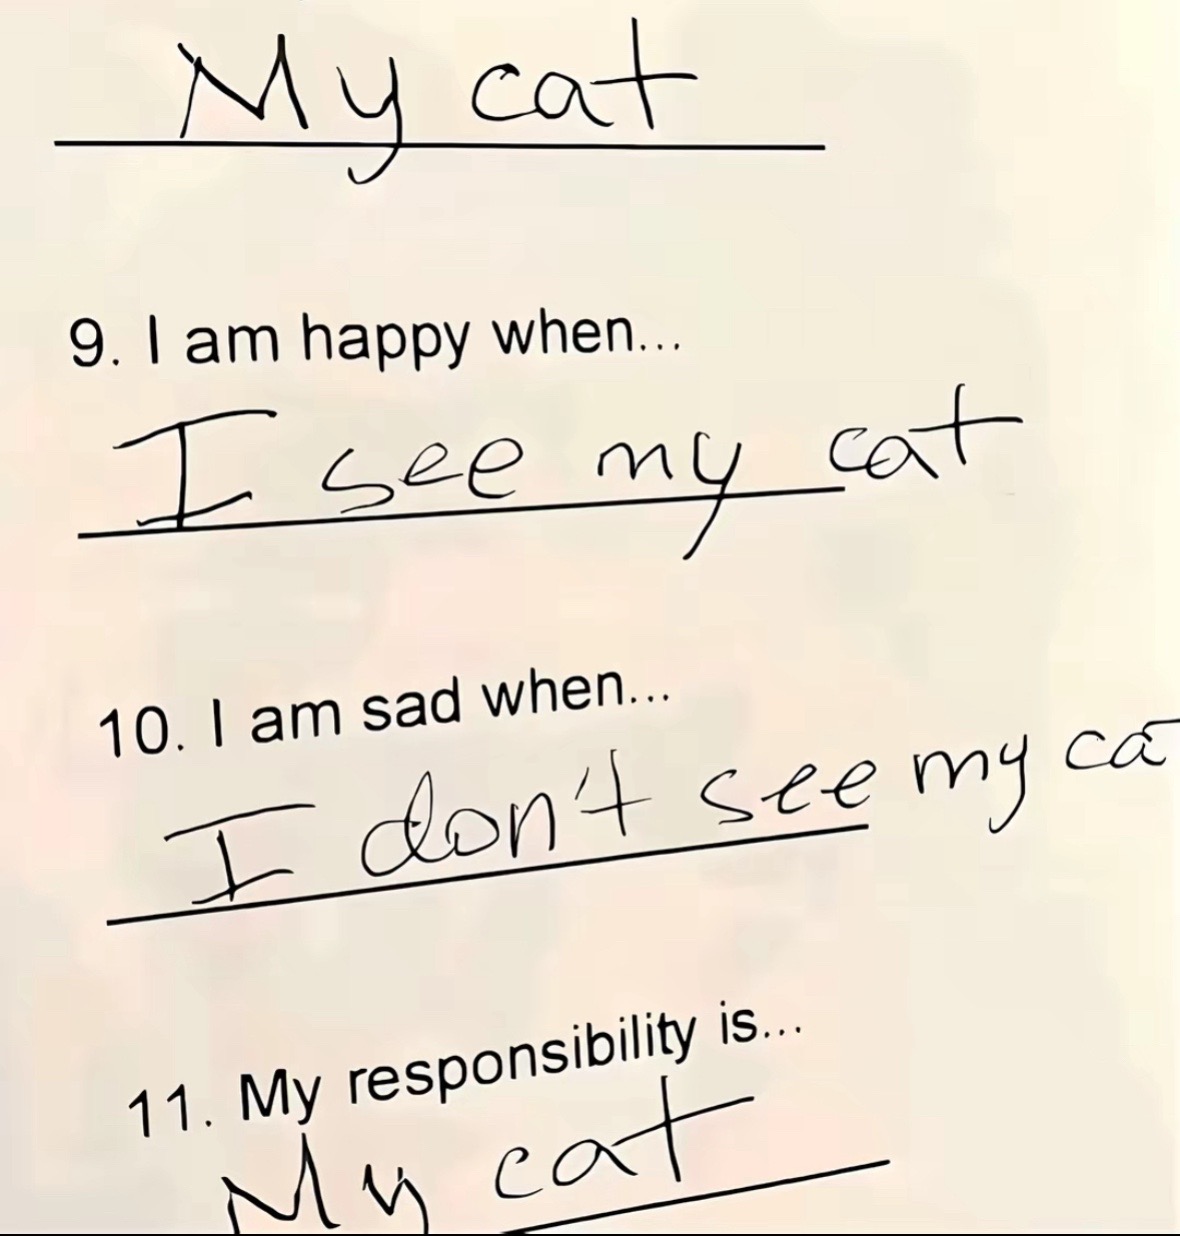 My cat
9. I am happy when...
I see my cat
10. I am sad when...
I don't see my ca
11. My responsibility is...
My cat